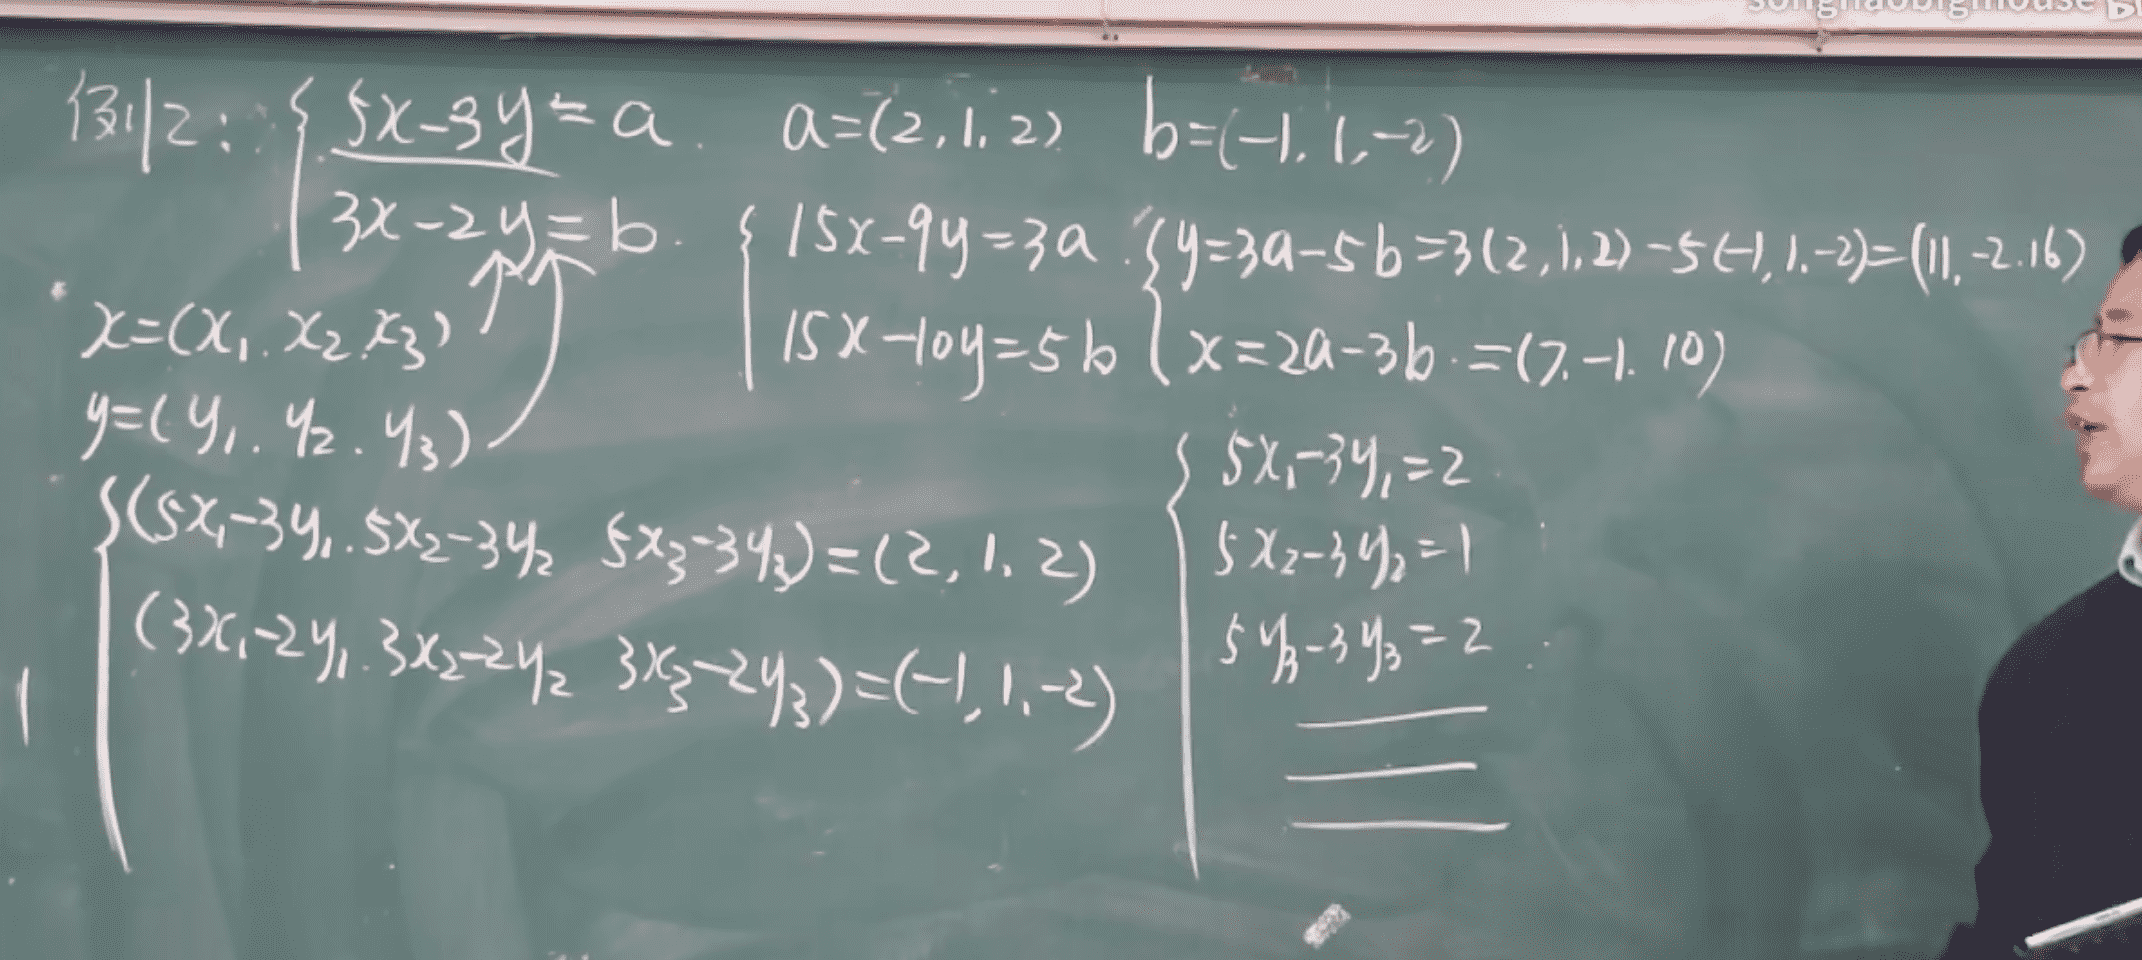 songhaobigmouse
例2: { 5x-3y=a. a=(2,1,2) b=(-1,1,-2)
3x-2y=b.
{ 15x-9y=3a.
15x-10y=5b
{ y=3a-5b=3(2,1,2)-5(-1,1,-2)=(11,-2,16)
x=2a-3b.=(7,-1,10)
x=(x₁,x₂,x₃)
y=(y₁,y₂,y₃)
{ (5x₁-3y₁,5x₂-3y₂ 5x₃-3y₃)=(2,1,2)
(3x₁-2y₁,3x₂-2y₂ 3x₃-2y₃)=(-1,1,-2)
{ 5x₁-3y₁=2
5x₂-3y₂=1
5y₃-3y₃=2